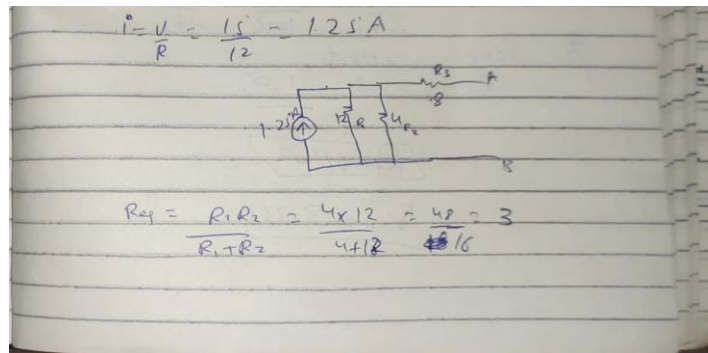 i = V/R = 15/12 = 1.25 A
R3
A
8
1.25 A
12 R
4 R2
B
Req = R1R2/R1+R2 = 4x12/4+12 = 48/16 = 3